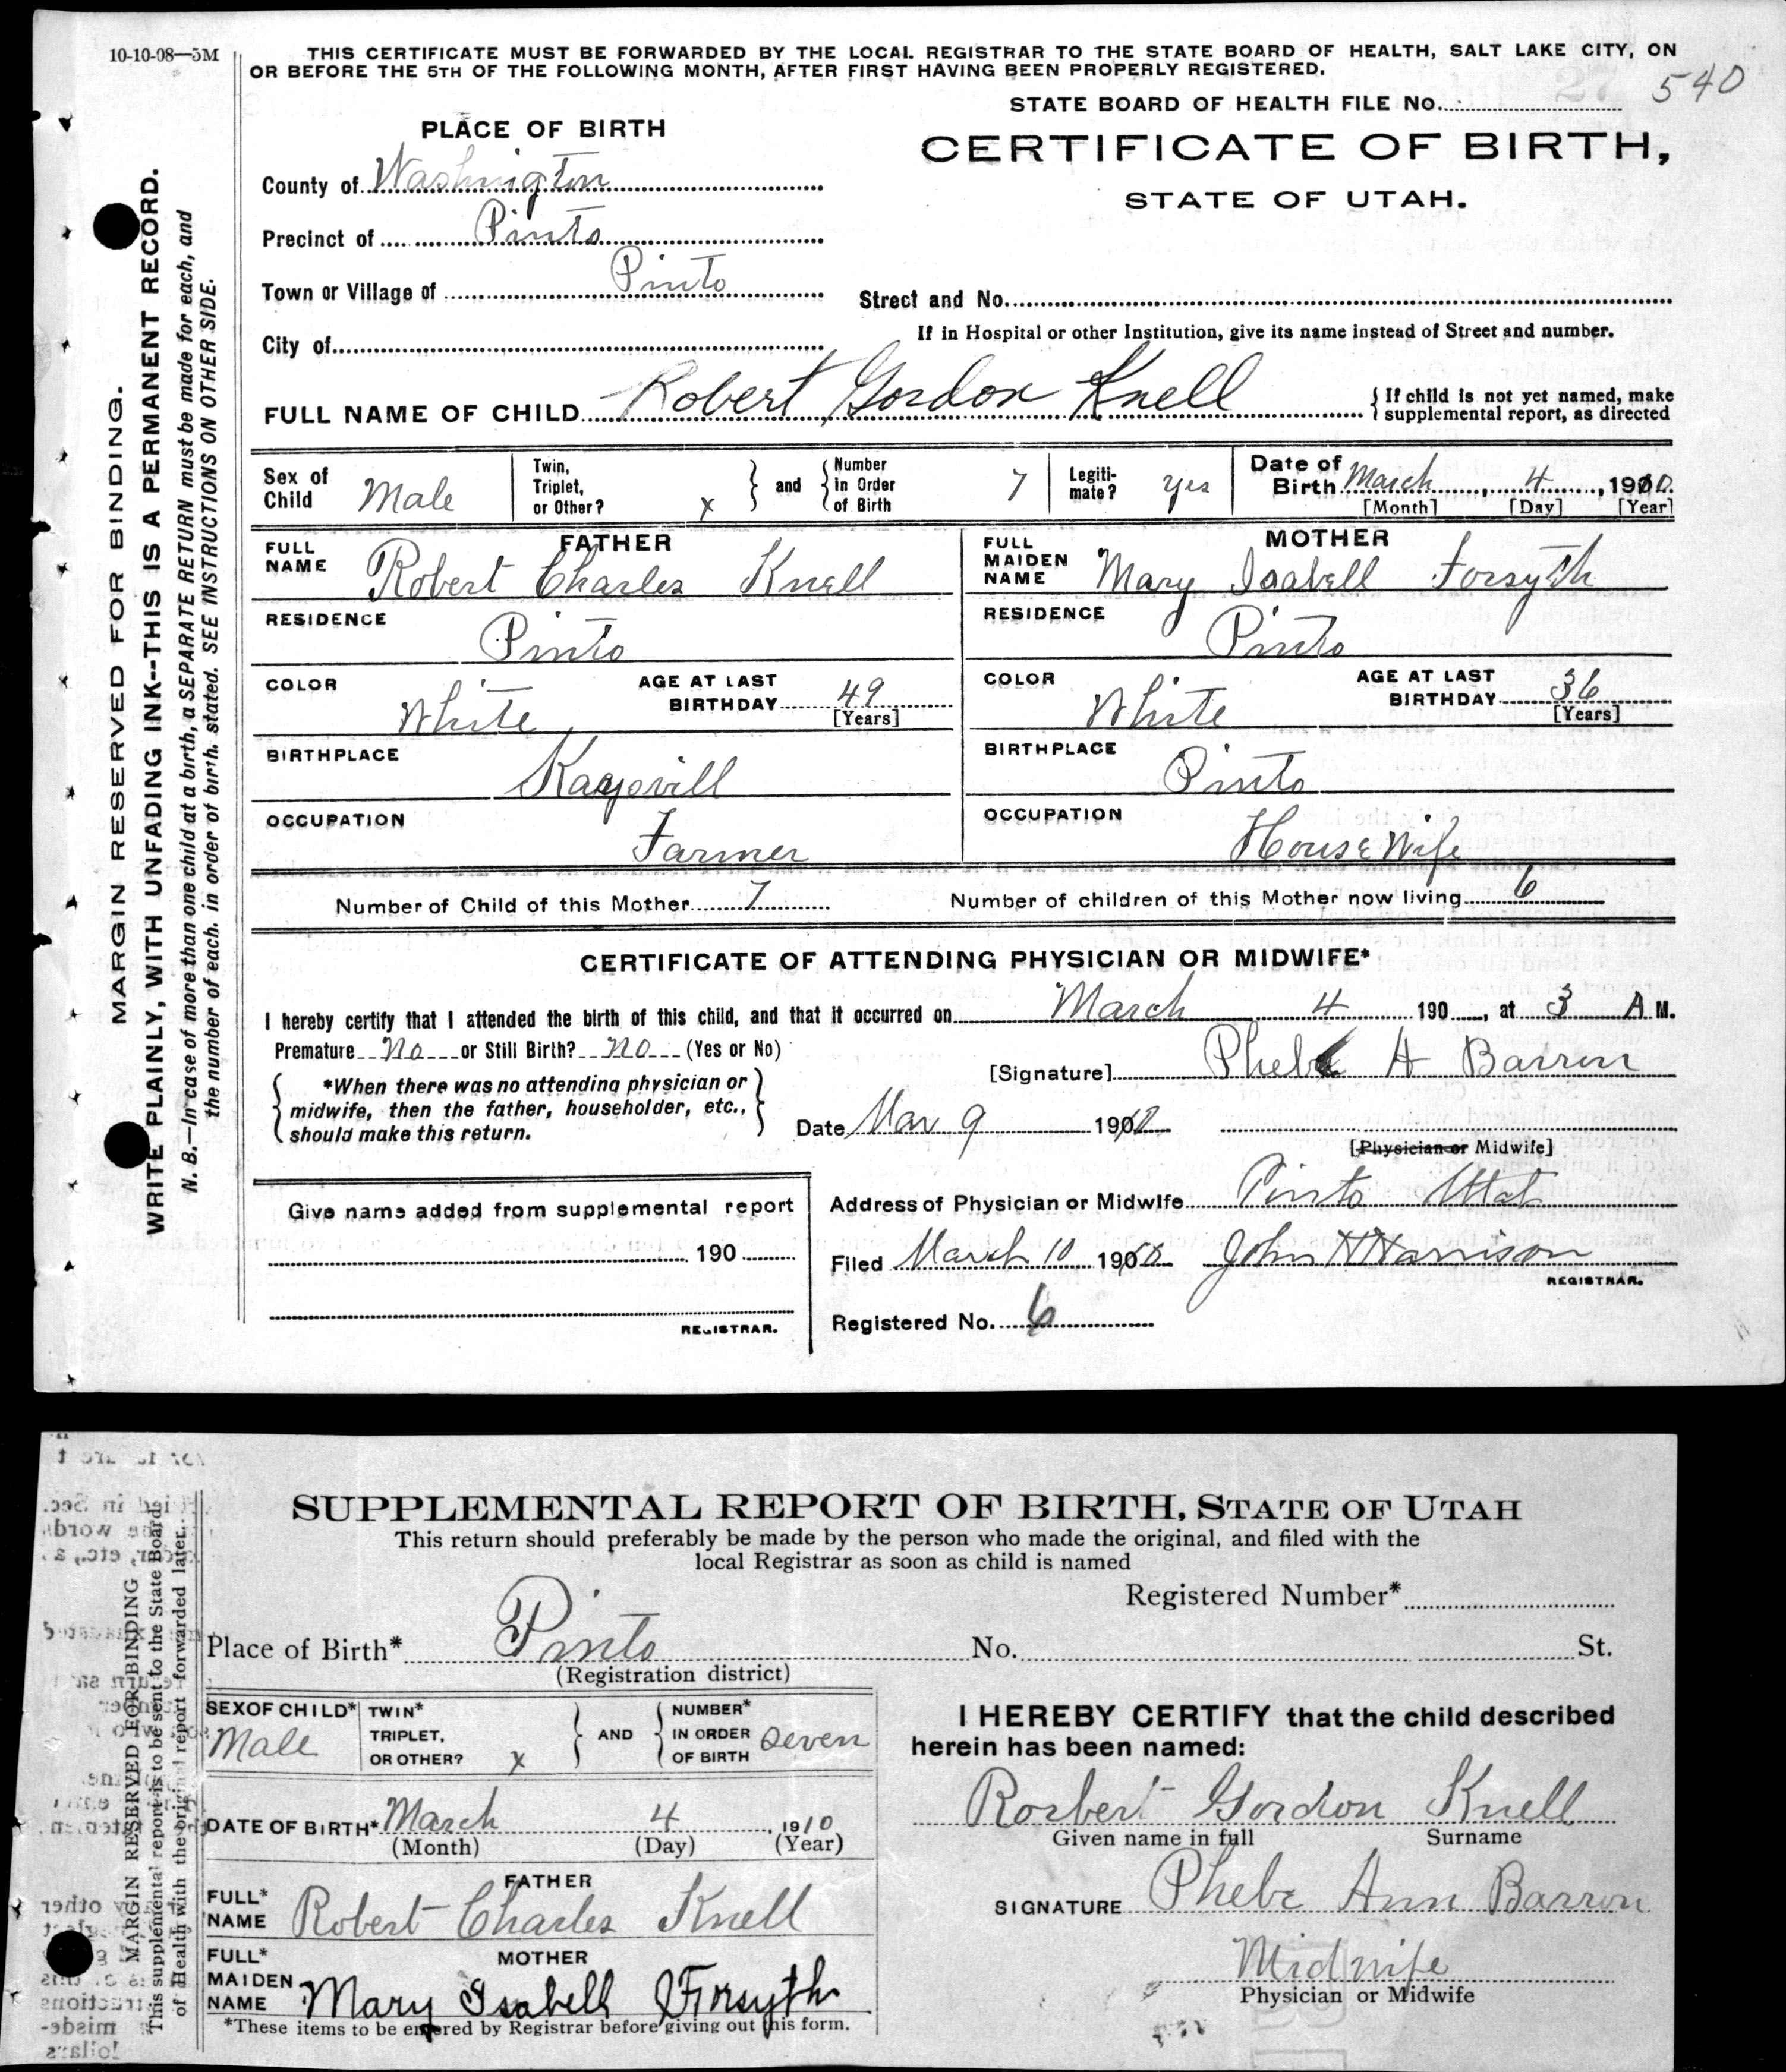 10-10-08—5M
THIS CERTIFICATE MUST BE FORWARDED BY THE LOCAL REGISTRAR TO THE STATE BOARD OF HEALTH, SALT LAKE CITY, ON
OR BEFORE THE 5TH OF THE FOLLOWING MONTH, AFTER FIRST HAVING BEEN PROPERLY REGISTERED.
540
STATE BOARD OF HEALTH FILE No.
PLACE OF BIRTH
CERTIFICATE OF BIRTH,
STATE OF UTAH.
County of Washington
Precinct of Pinto
Town or Village of Pinto
Street and No.
City of
If in Hospital or other Institution, give its name instead of Street and number.
FULL NAME OF CHILD Robert Gordon Knell { If child is not yet named, make
supplemental report, as directed
Sex of Child Male Twin, Triplet, or Other? x } and { Number in Order of Birth 7 Legiti-mate? yes Date of Birth March 4, 1910.
[Month] [Day] [Year]
FATHER MOTHER
FULL NAME Robert Charles Knell FULL MAIDEN NAME Mary Isabell Forsyth
RESIDENCE Pinto RESIDENCE Pinto
COLOR White AGE AT LAST BIRTHDAY 49 [Years] COLOR White AGE AT LAST BIRTHDAY 36 [Years]
BIRTHPLACE Kaysvill BIRTHPLACE Pinto
OCCUPATION Farmer OCCUPATION House Wife
Number of Child of this Mother 7 Number of children of this Mother now living 6
CERTIFICATE OF ATTENDING PHYSICIAN OR MIDWIFE*
I hereby certify that I attended the birth of this child, and that it occurred on March 4 190 , at 3 A M.
Premature no or Still Birth? no (Yes or No)
[Signature] Phebe A Barron
*When there was no attending physician or
midwife, then the father, householder, etc.,
should make this return.
Date Mar 9 1910
[Physician or Midwife]
Address of Physician or Midwife Pinto Utah
Give name added from supplemental report
190
REGISTRAR.
Filed March 10 1910 John H Harrison
REGISTRAR.
Registered No. 6
MARGIN RESERVED FOR BINDING.
WRITE PLAINLY, WITH UNFADING INK--THIS IS A PERMANENT RECORD.
N. B.—In case of more than one child at a birth, a SEPARATE RETURN must be made for each, and
the number of each, in order of birth, stated. SEE INSTRUCTIONS ON OTHER SIDE.
SUPPLEMENTAL REPORT OF BIRTH, STATE OF UTAH
This return should preferably be made by the person who made the original, and filed with the
local Registrar as soon as child is named
Registered Number*
Place of Birth* Pinto No. St.
(Registration district)
SEX OF CHILD* Male TWIN* TRIPLET, OR OTHER? x } AND { NUMBER* IN ORDER OF BIRTH Seven
DATE OF BIRTH* March 4, 1910
(Month) (Day) (Year)
FATHER
FULL* NAME Robert Charles Knell
MOTHER
FULL* MAIDEN NAME Mary Isabell Forsyth
*These items to be entered by Registrar before giving out this form.
I HEREBY CERTIFY that the child described
herein has been named:
Rorbert Gordon Knell
Given name in full Surname
SIGNATURE Phebe Ann Barron
Midwife
Physician or Midwife
MARGIN RESERVED FOR BINDING
This supplemental report is to be sent to the State Board
of Health with the original report forwarded later.